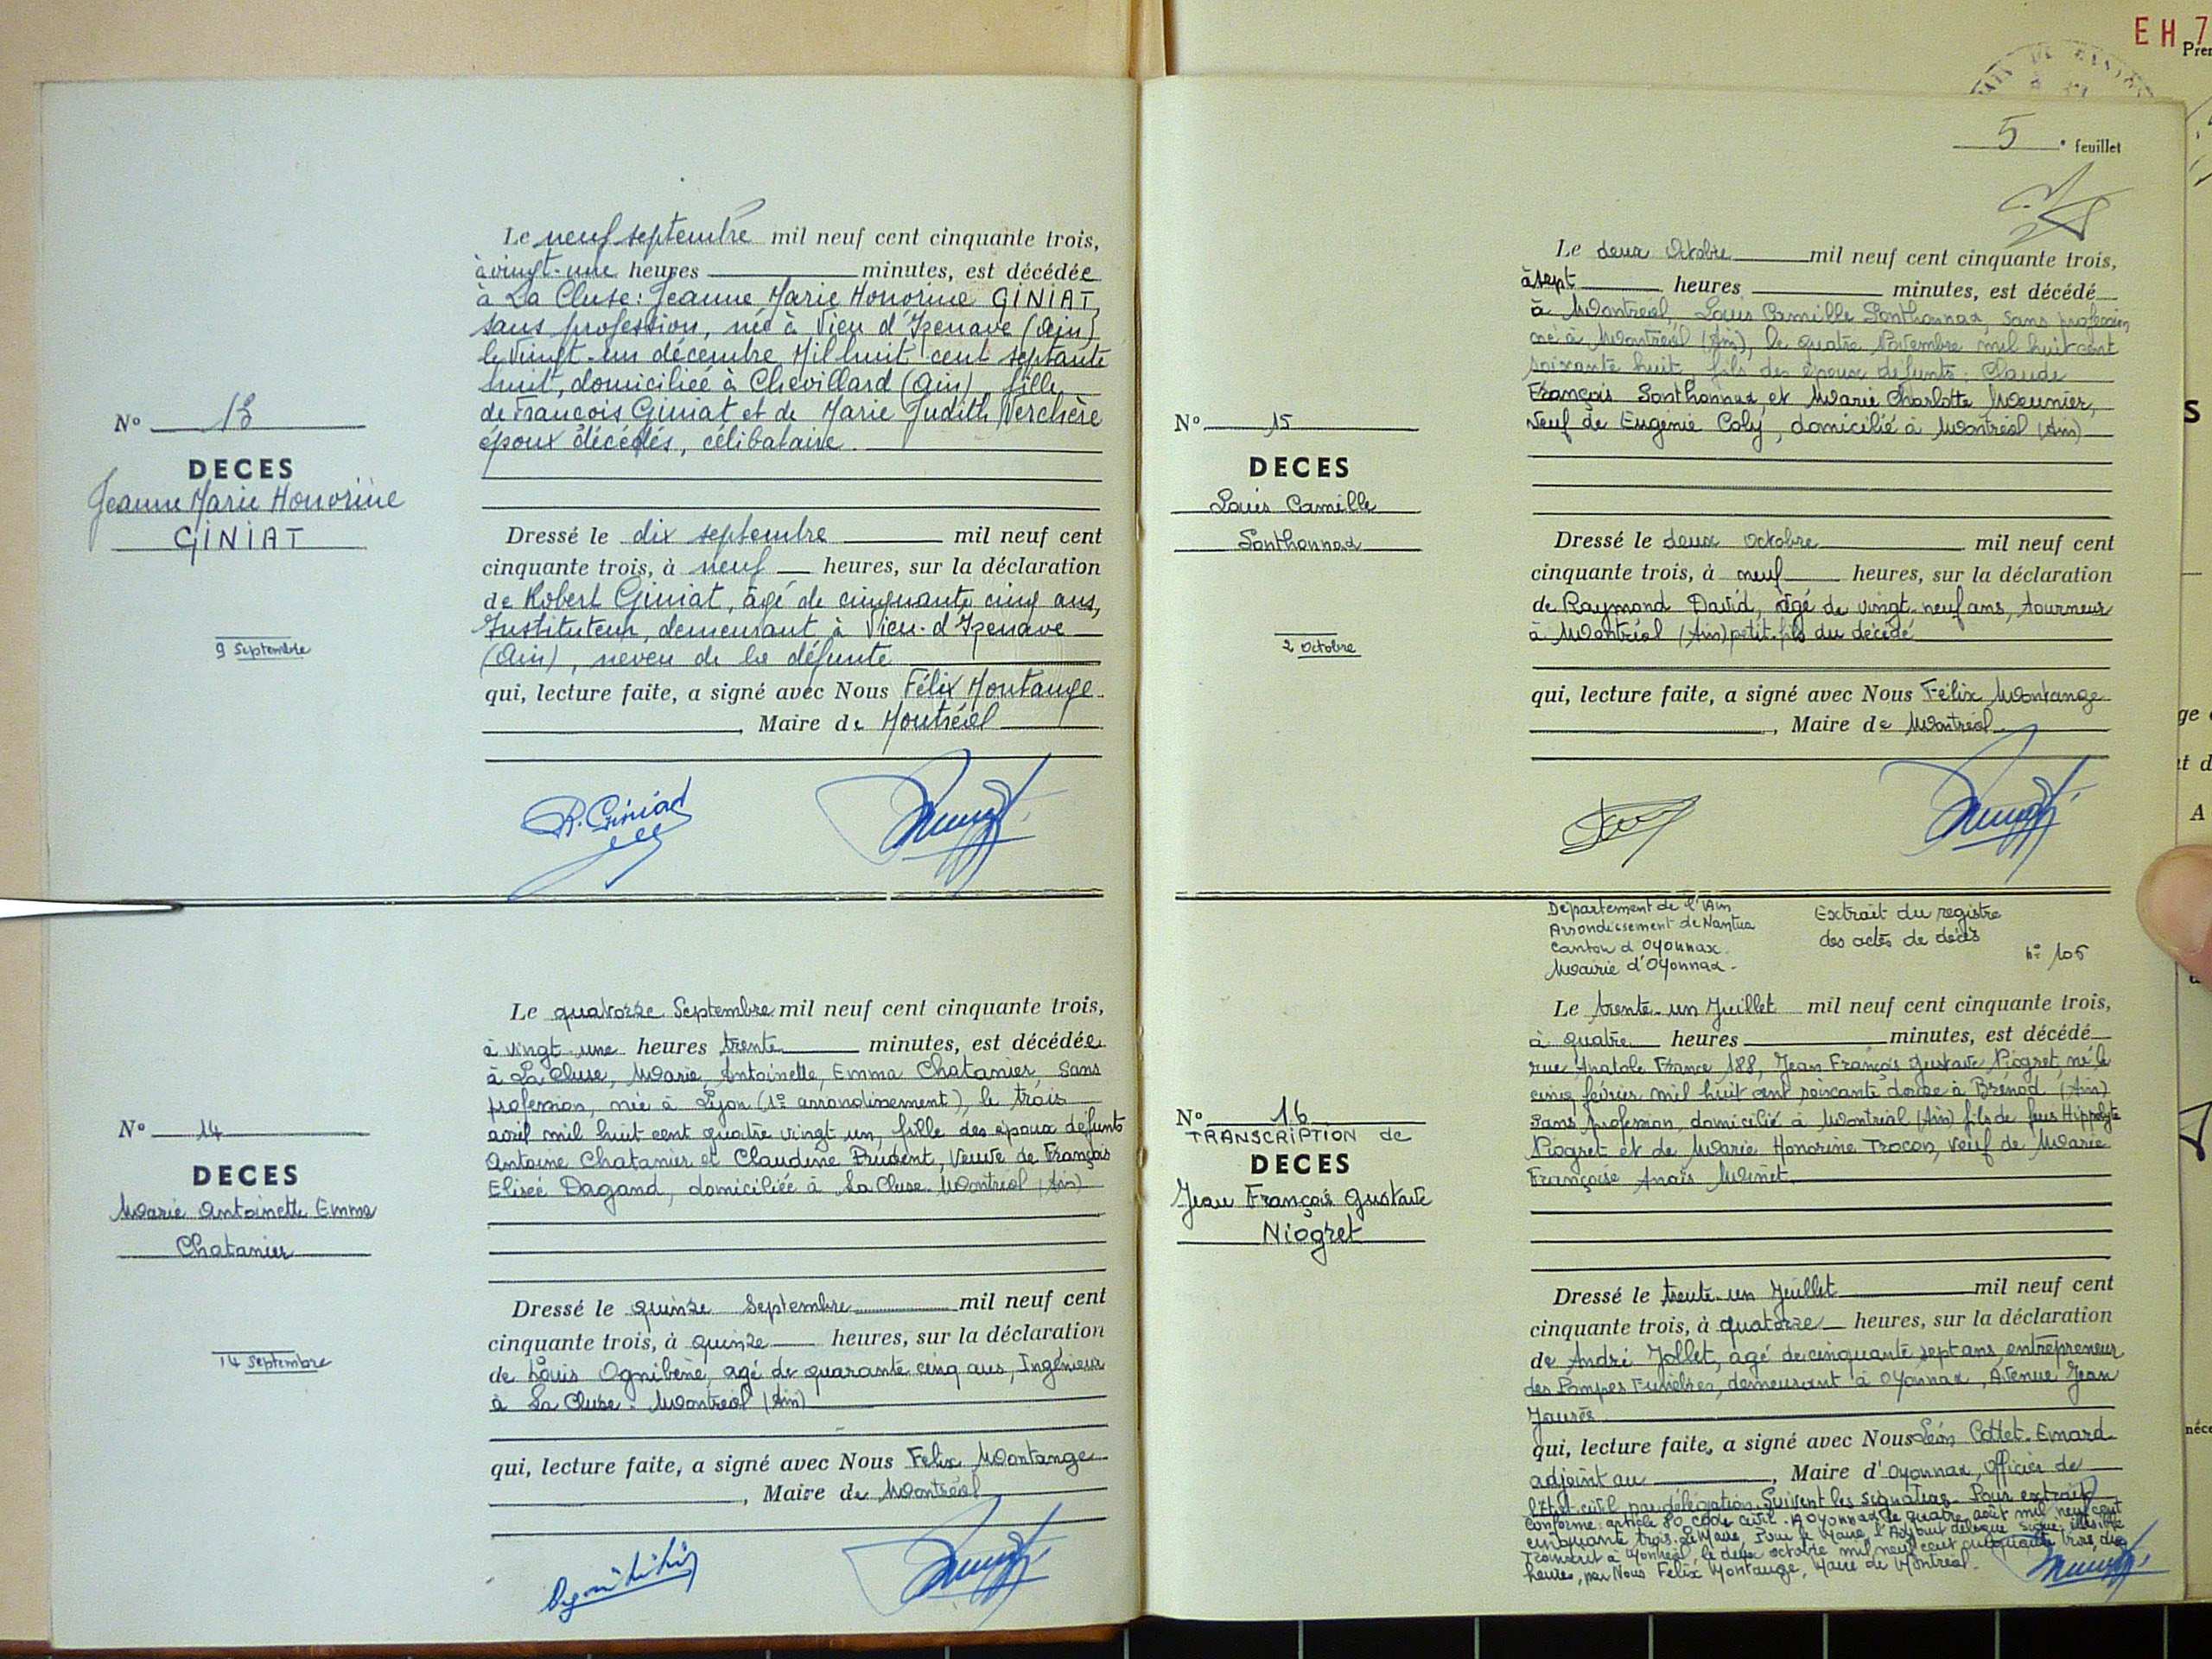 N° 13
DECES
Jeanne Marie Honorine
GINIAT
9 Septembre
Le neuf septembre mil neuf cent cinquante trois,
à vingt-une heures minutes, est décédée
à La Cluse: Jeanne Marie Honorine GINIAT,
sans profession, née à Vieu d'Izenave (Ain)
le Vingt-un décembre Mil huit cent septante
huit, domiciliée à Chevillard (Ain), fille
de François Giniat et de Marie Judith Verchère
époux décédés, célibataire.
Dressé le dix septembre mil neuf cent
cinquante trois, à neuf heures, sur la déclaration
de Robert Giniat, âgé de cinquante cinq ans,
Instituteur, demeurant à Vieu-d'Izenave
(Ain), neveu de la défunte
qui, lecture faite, a signé avec Nous Félix Montange
, Maire de Montréal
R. Giniat
N° 14
DECES
Marie Antoinette Emma
Chatanier
14 Septembre
Le quatorze Septembre mil neuf cent cinquante trois,
à vingt-une heures trente minutes, est décédée
à La Cluse, Marie, Antoinette, Emma Chatanier, Sans
profession, née à Lyon (1e arrondissement), le trois
avril mil huit cent quatre vingt un, fille des époux défunts
Antoine Chatanier et Claudine Prudent, Veuve de François
Elisée Dagand, domiciliée à La Cluse. Montréal (Ain)
Dressé le quinze Septembre mil neuf cent
cinquante trois, à quinze heures, sur la déclaration
de Louis Ognibène, agé de quarante cinq ans, Ingénieur
à La Cluse. Montréal (Ain)
qui, lecture faite, a signé avec Nous Felix Montange
, Maire de Montréal
EH 7
5 e feuillet
N° 15
DECES
Louis Camille
Sonthonnax
2 Octobre
Le deux Octobre mil neuf cent cinquante trois,
à sept heures minutes, est décédé
à Montréal, Louis Camille Sonthonnax, Sans profession
né à Montréal (Ain), le quatre Novembre mil huit cent
soixante huit, fils des époux défunts: Claude
François Sonthonnax et Marie Charlotte Meunier,
Veuf de Eugénie Coly, domicilié à Montréal (Ain)
Dressé le deux Octobre mil neuf cent
cinquante trois, à neuf heures, sur la déclaration
de Raymond David, agé de vingt-neuf ans, tourneur
à Montréal (Ain) petit-fils du décédé
qui, lecture faite, a signé avec Nous Félix Montange
, Maire de Montréal
Département de l'Ain
Arrondissement de Nantua
Canton d'Oyonnax
Mairie d'Oyonnax
Extrait du registre
des actes de décès
N° 106
N° 16
TRANSCRIPTION de
DECES
Jean François Gustave
Niogret
Le trente-un Juillet mil neuf cent cinquante trois,
à quatre heures minutes, est décédé
rue Anatole France 188, Jean François Gustave Niogret, né le
cinq février mil huit cent soixante douze à Brénod (Ain)
Sans profession, domicilié à Montréal (Ain) fils de feus Hippolyte
Niogret et de Marie Honorine Trocon, Veuf de Marie
Françoise Anaïs Minet.
Dressé le trente-un Juillet mil neuf cent
cinquante trois, à quatorze heures, sur la déclaration
de André Jollet, agé de cinquante sept ans, entrepreneur
des Pompes Funèbres, demeurant à Oyonnax, Avenue Jean
Jaurès
qui, lecture faite, a signé avec Nous Léon Cottet-Emard
adjoint au , Maire d'Oyonnax, Officier de
l'Etat civil par délégation. Suivent les signatures. Pour extrait
Conforme. article 80 code civil. A Oyonnax le quatre août mil neuf cent
cinquante trois. Le Maire. Pour le Maire, l'Adjoint délégué signé: illisible
Transcrit à Montréal, le deux octobre mil neuf cent cinquante trois, dix
heures, par Nous Félix Montange, Maire de Montréal.